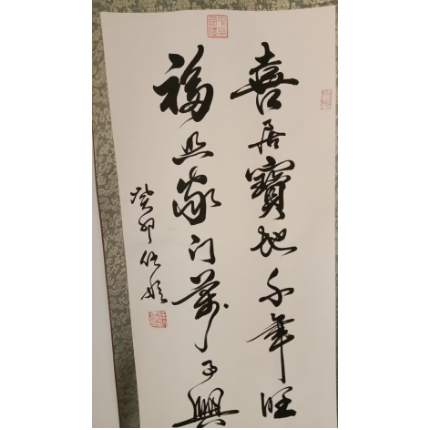 喜居寶地千年旺
福照家门萬事興
癸卯仕